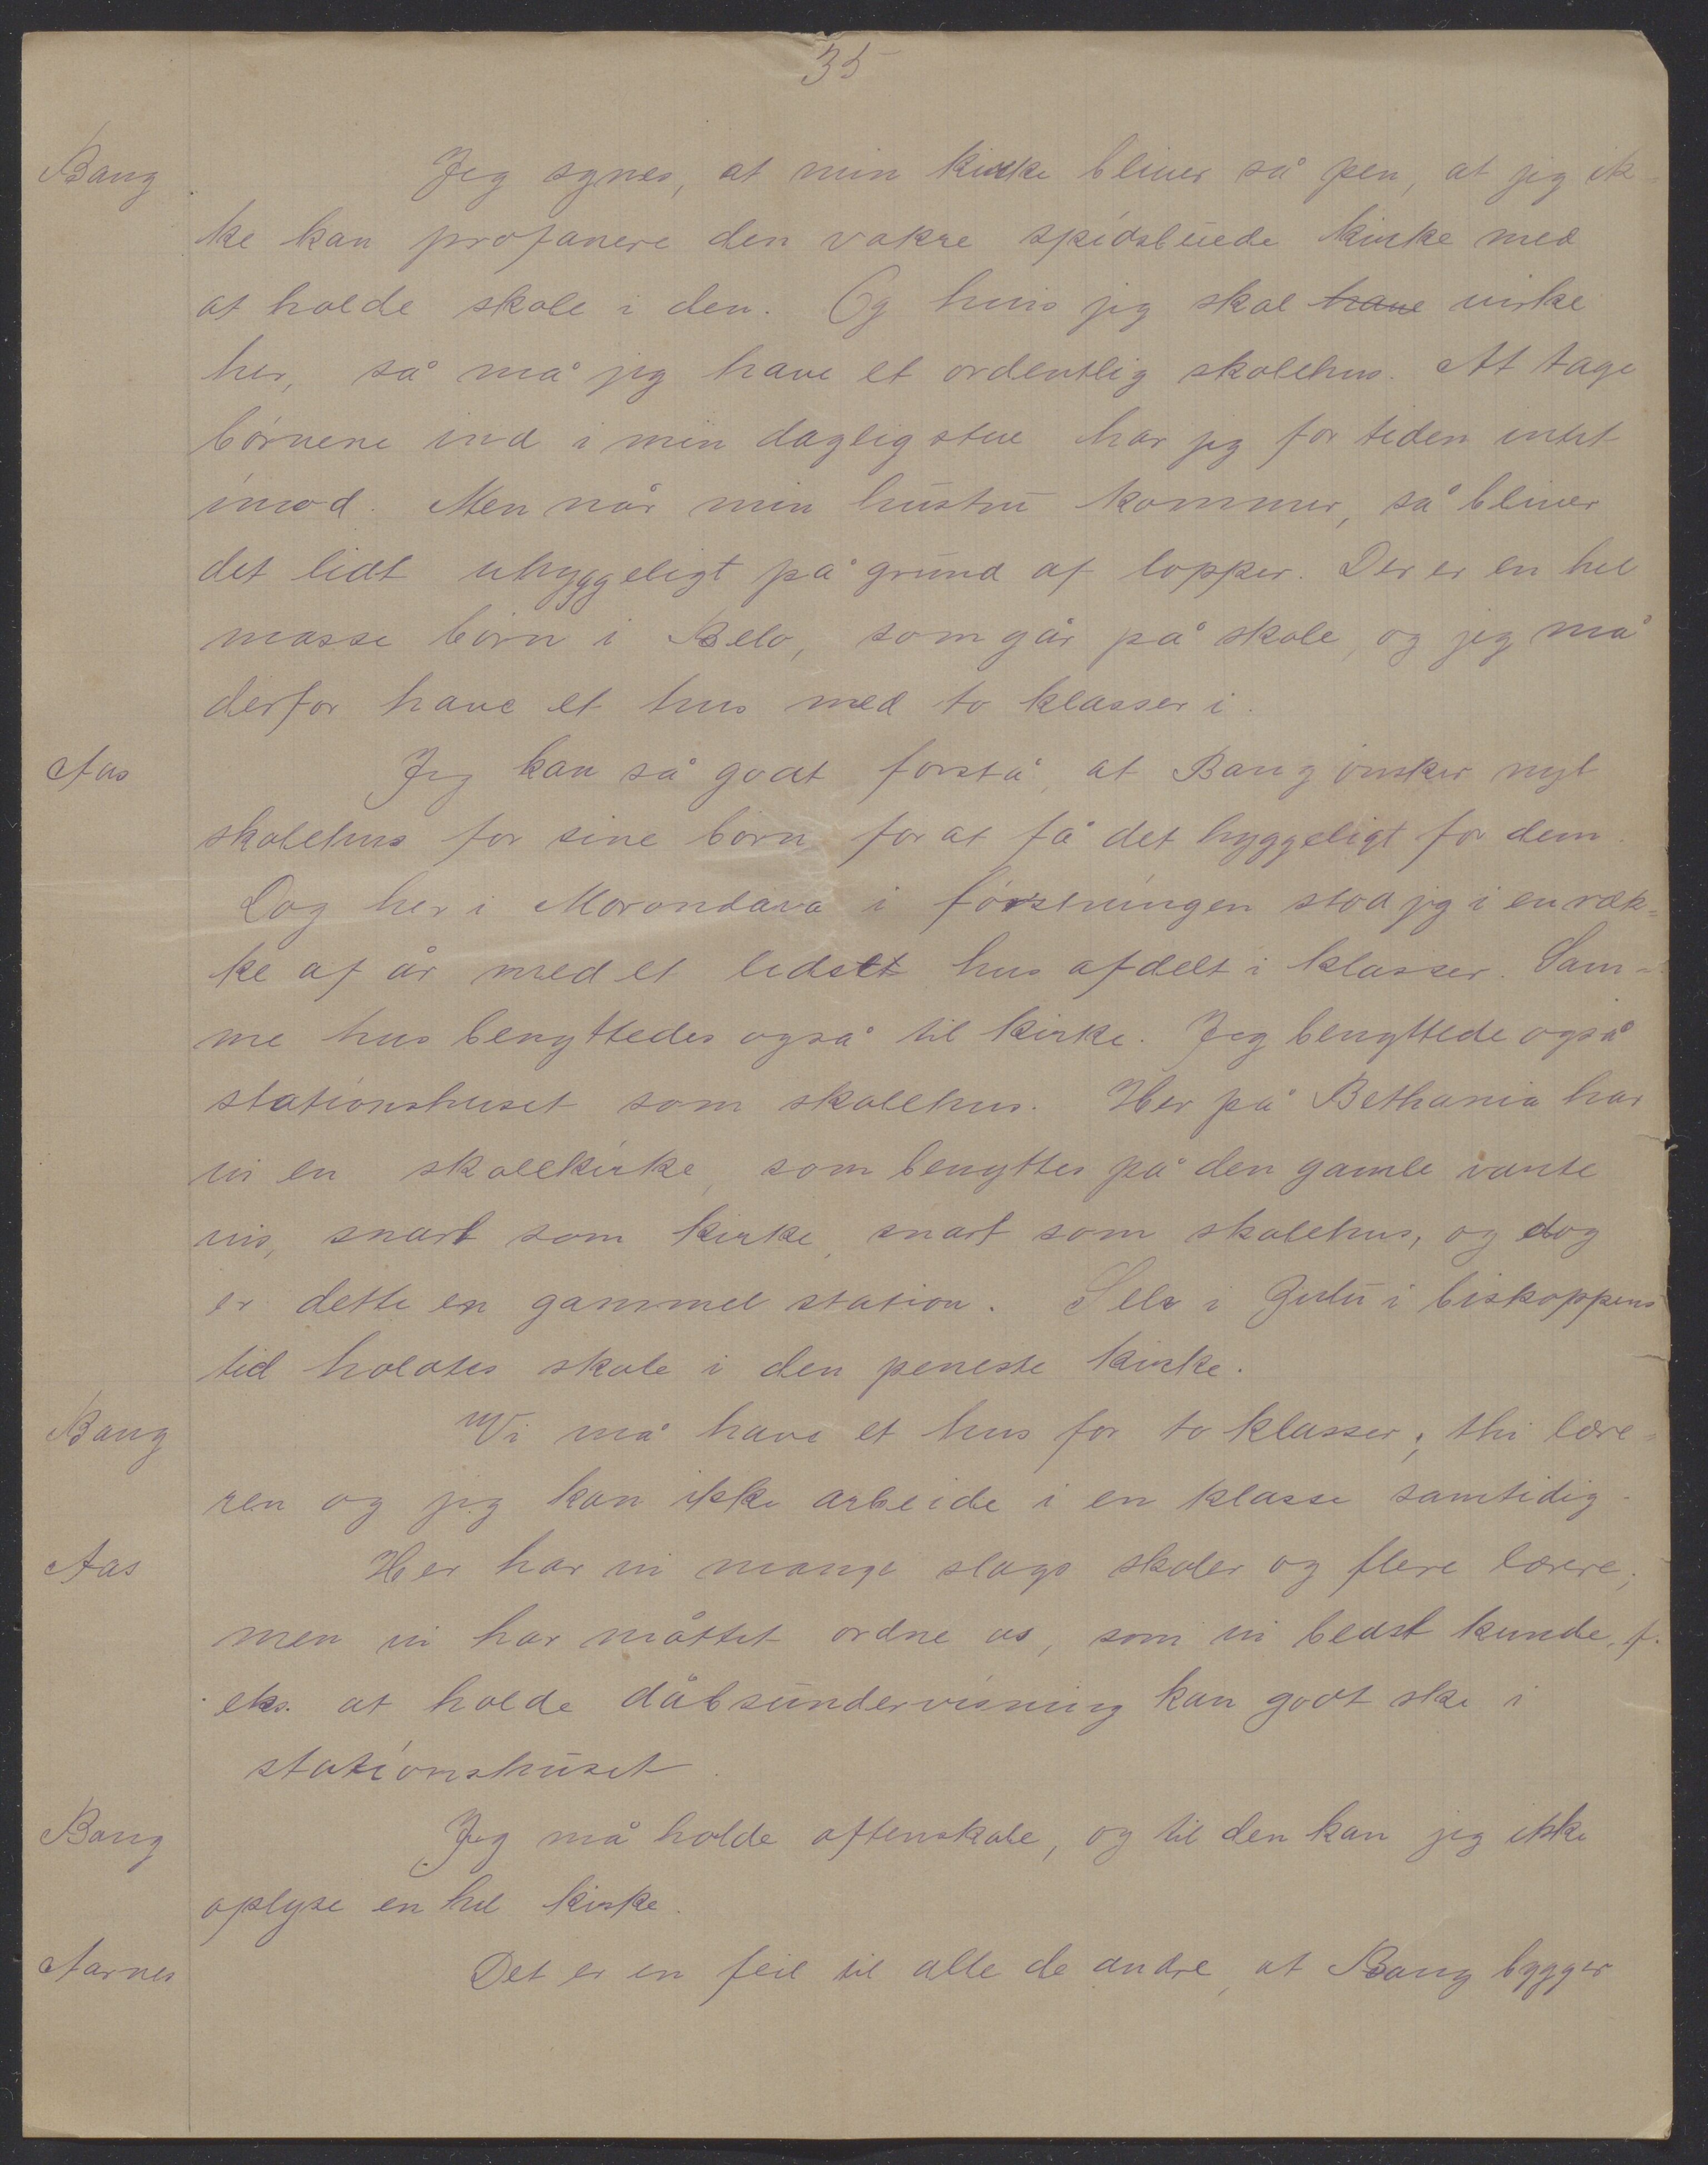 35
Bang Jeg synes, at min kirke bliver så pen, at jeg ik-
ke kan profanere den vakre spidsbuede kirke med
at holde skole i den. Og hvis jeg skal have virke
her, så må jeg have et ordentlig skolehus. At tage
børnene ind i min dagligstue har jeg for tiden intet
imod. Men når min hustru kommer, så bliver
det lidt uhyggeligt på grund af lopper. Der er en hel
masse børn i Belo, som går på skole, og jeg må
derfor have et hus med to klasser i.
Aas Jeg kan så godt forstå, at Bang ønsker nyt
skolehus for sine børn for at få det hyggeligt for dem.
Dog her i Morondava i førstningen stod jeg i en ræk-
ke af år med et lidet hus afdelt i klasser. Sam-
me hus benyttedes også til kirke. Jeg benyttede også
stationshuset som skolehus. Her på Bethania har
vi en skolekirke, som benyttes på den gamle vante
vis, snart som kirke, snart som skolehus, og dog
er dette en gammel station. Selv i Zulu i biskoppens
tid holdtes skole i den peneste kirke.
Bang Vi må have et hus for to klasser; thi lære-
ren og jeg kan ikke arbeide i en klasse samtidig.
Aas Her har vi mange slags skoler og flere lærere;
men vi har måttet ordne os, som vi bedst kunde, f.
eks. at holde dåbsundervisning kan godt ske i
stationshuset.
Bang Jeg må holde aftenskole, og til den kan jeg ikke
oplyse en hel kirke.
Aarnes Det er en feil til alle de andre, at Bang bygger